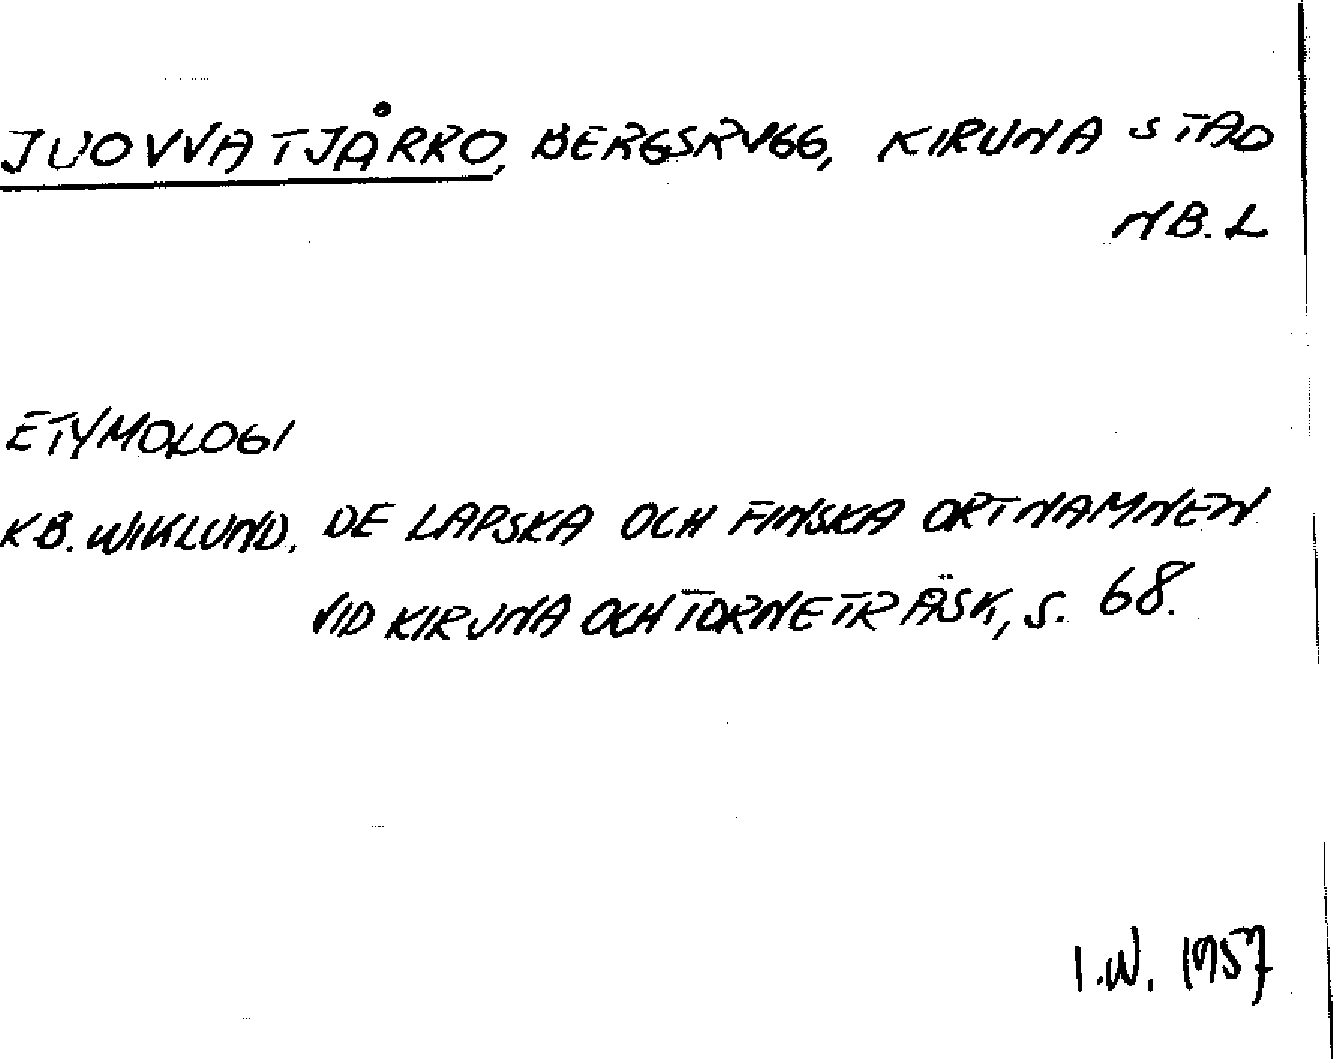 JUOVVATJÅRRO, BERGSRYGG, KIRUNA STAD
NB. L
ETYMOLOGI
KB. WIKLUND, DE LAPSKA OCH FINSKA ORTNAMNEN
VID KIRUNA OCH TORNETRÄSK, S. 68.
I.W. 1957